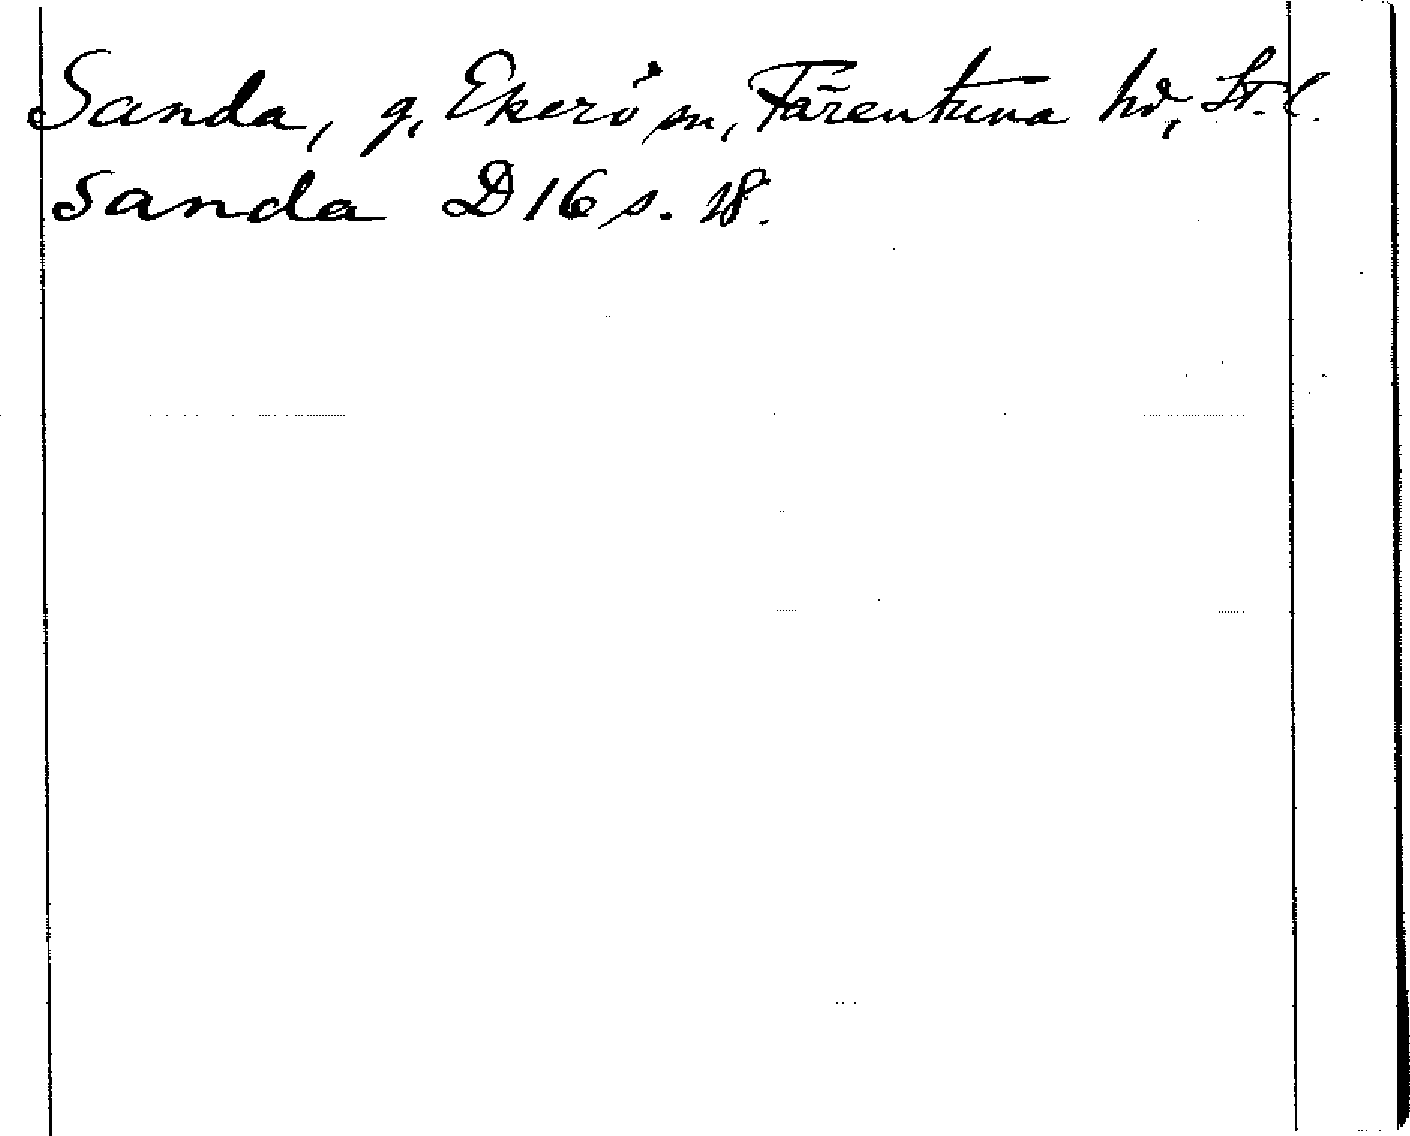 Sanda, g, Ekerö sn, Färentuna hd, St. l.
Sanda D 16 s. 18.